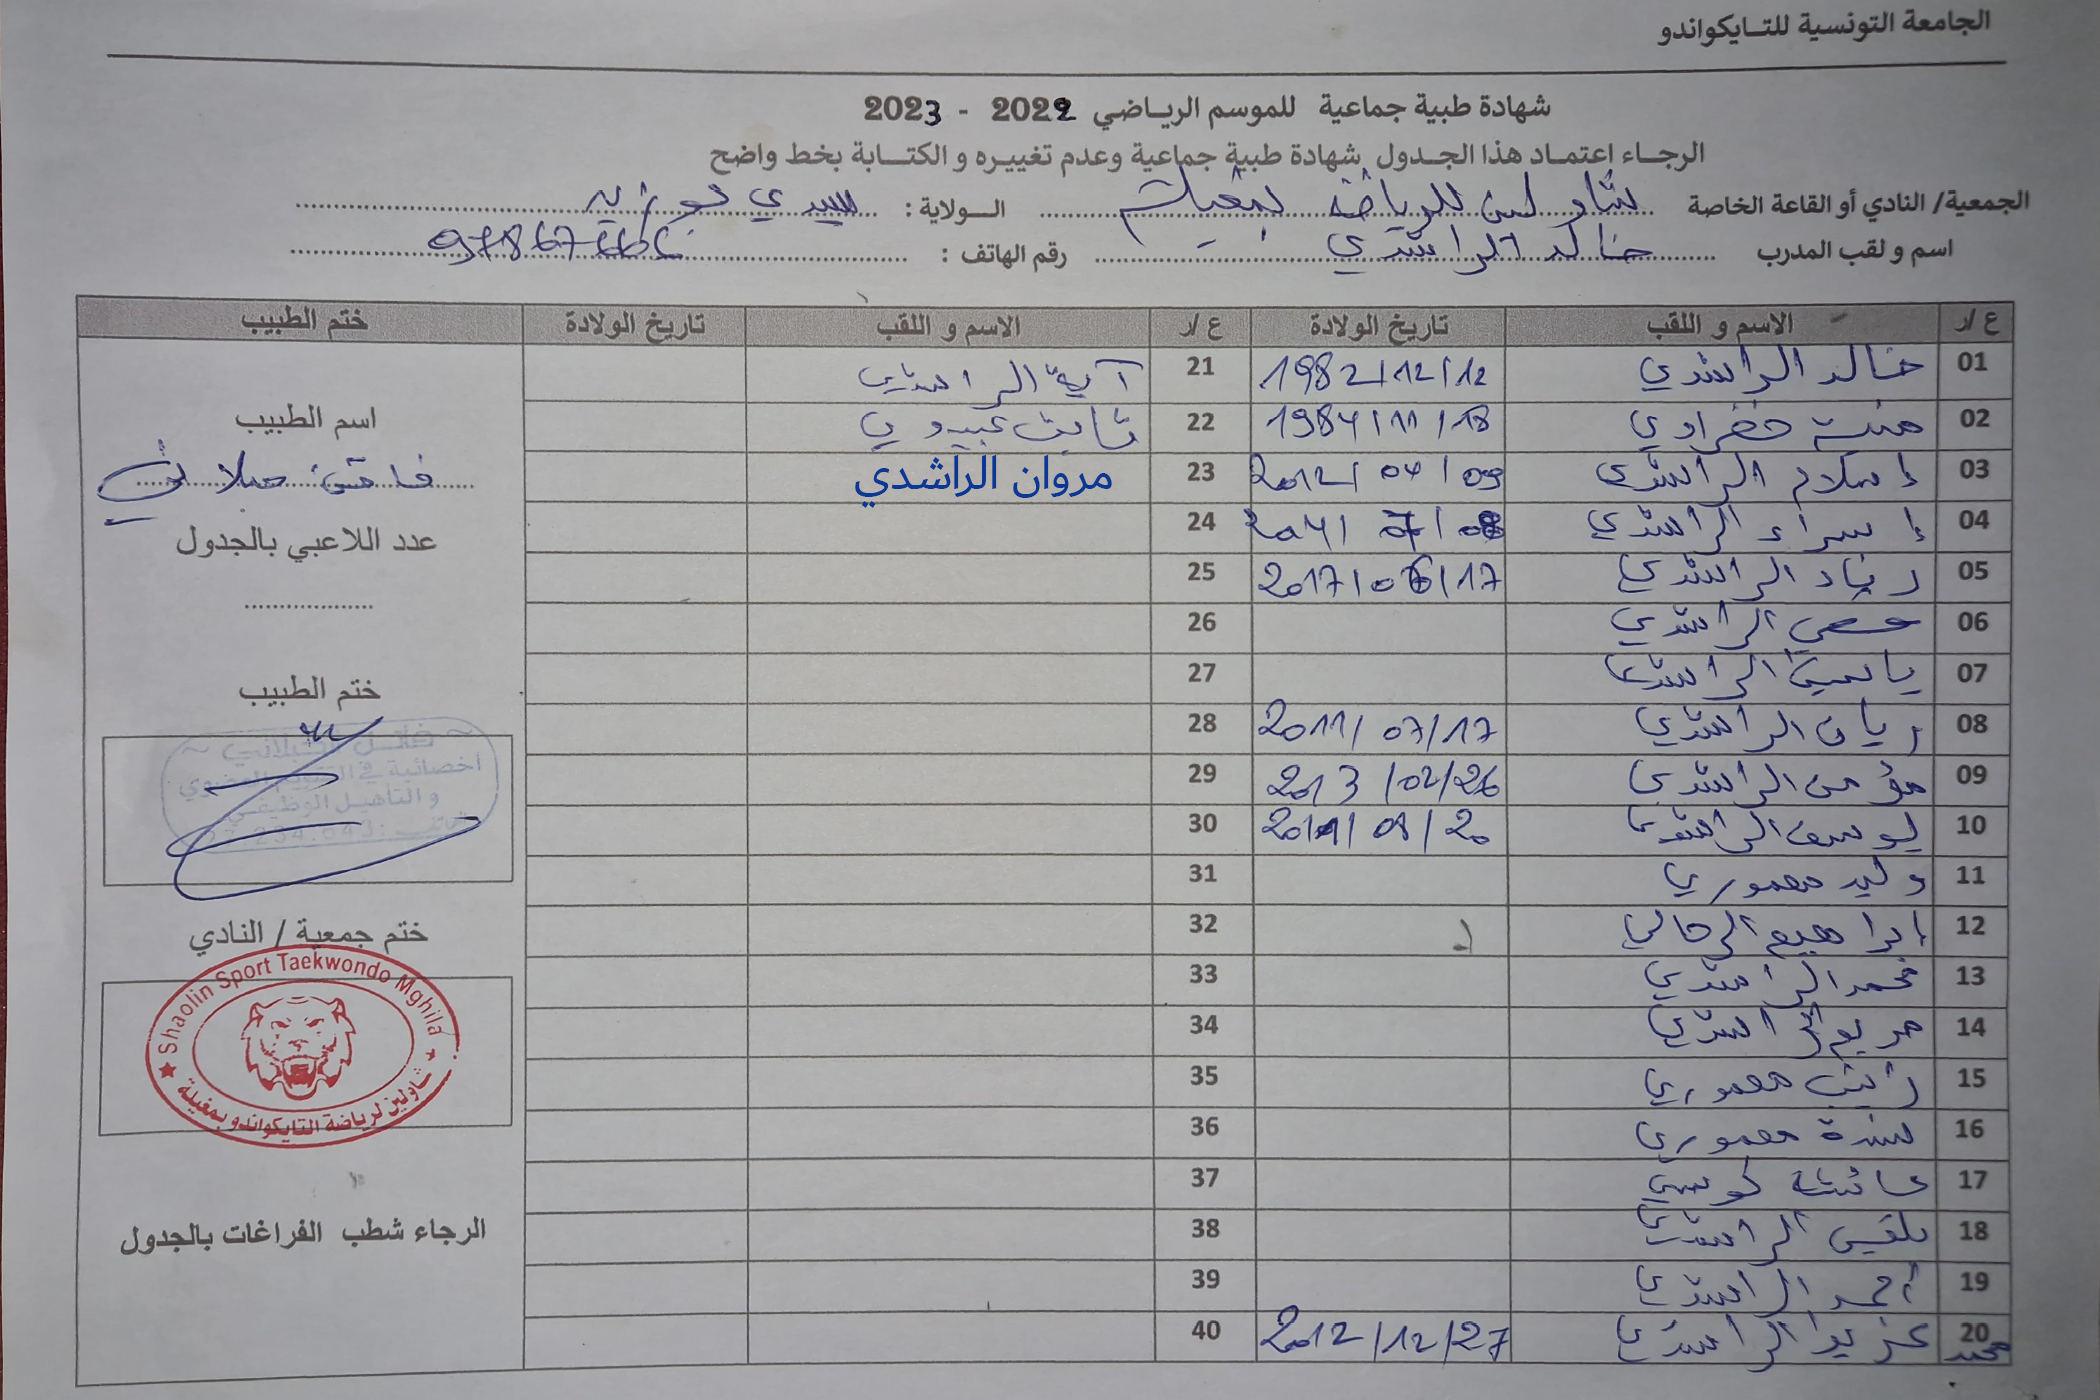 الجامعة التونسية للتايكواندو
شهادة طبية جماعية للموسم الرياضي 2022 - 2023
الرجاء اعتماد هذا الجدول شهادة طبية جماعية وعدم تغييره و الكتابة بخط واضح
الجمعية/ النادي أو القاعة الخاصة شاولين للرياضة بمغيلة الولاية : سيدي بوزيد
اسم و لقب المدرب خالد الراشدي رقم الهاتف :
ع/ر الاسم و اللقب تاريخ الولادة ع/ر الاسم و اللقب تاريخ الولادة ختم الطبيب
01 خالد الراشدي 1982/12/12 21 آية الراشدي
02 خضراوي 1984/11/18 22 ثابت عبيدي
03 إسلام الراشدي 2012/04/09 23 مروان الراشدي
04 إسراء الراشدي 2014/07/08 24
05 الراشدي 2017/06/17 25
06 الراشدي 26
07 ياسمين الراشدي 27
08 ريان الراشدي 2011/07/17 28
09 مؤمن الراشدي 2013/02/26 29
10 يوسف الراشدي 30
11 وليد معموري 31
12 ابراهيم الرحالي 32
13 محمد الراشدي 33
14 مريم الراشدي 34
15 زينب معموري 35
16 معموري 36
17 عائشة 37
18 بلقيس الراشدي 38
19 أحمد الراشدي 39
20 محمد عزيز الراشدي 2012/12/27 40
اسم الطبيب
عدد اللاعبي بالجدول
ختم الطبيب
أخصائية في التقويم العضوي
و التأهيل الوظيفي
ختم جمعية / النادي
Shaolin Sport Taekwondo Mghila
شاولين لرياضة التايكواندو بمغيلة
الرجاء شطب الفراغات بالجدول